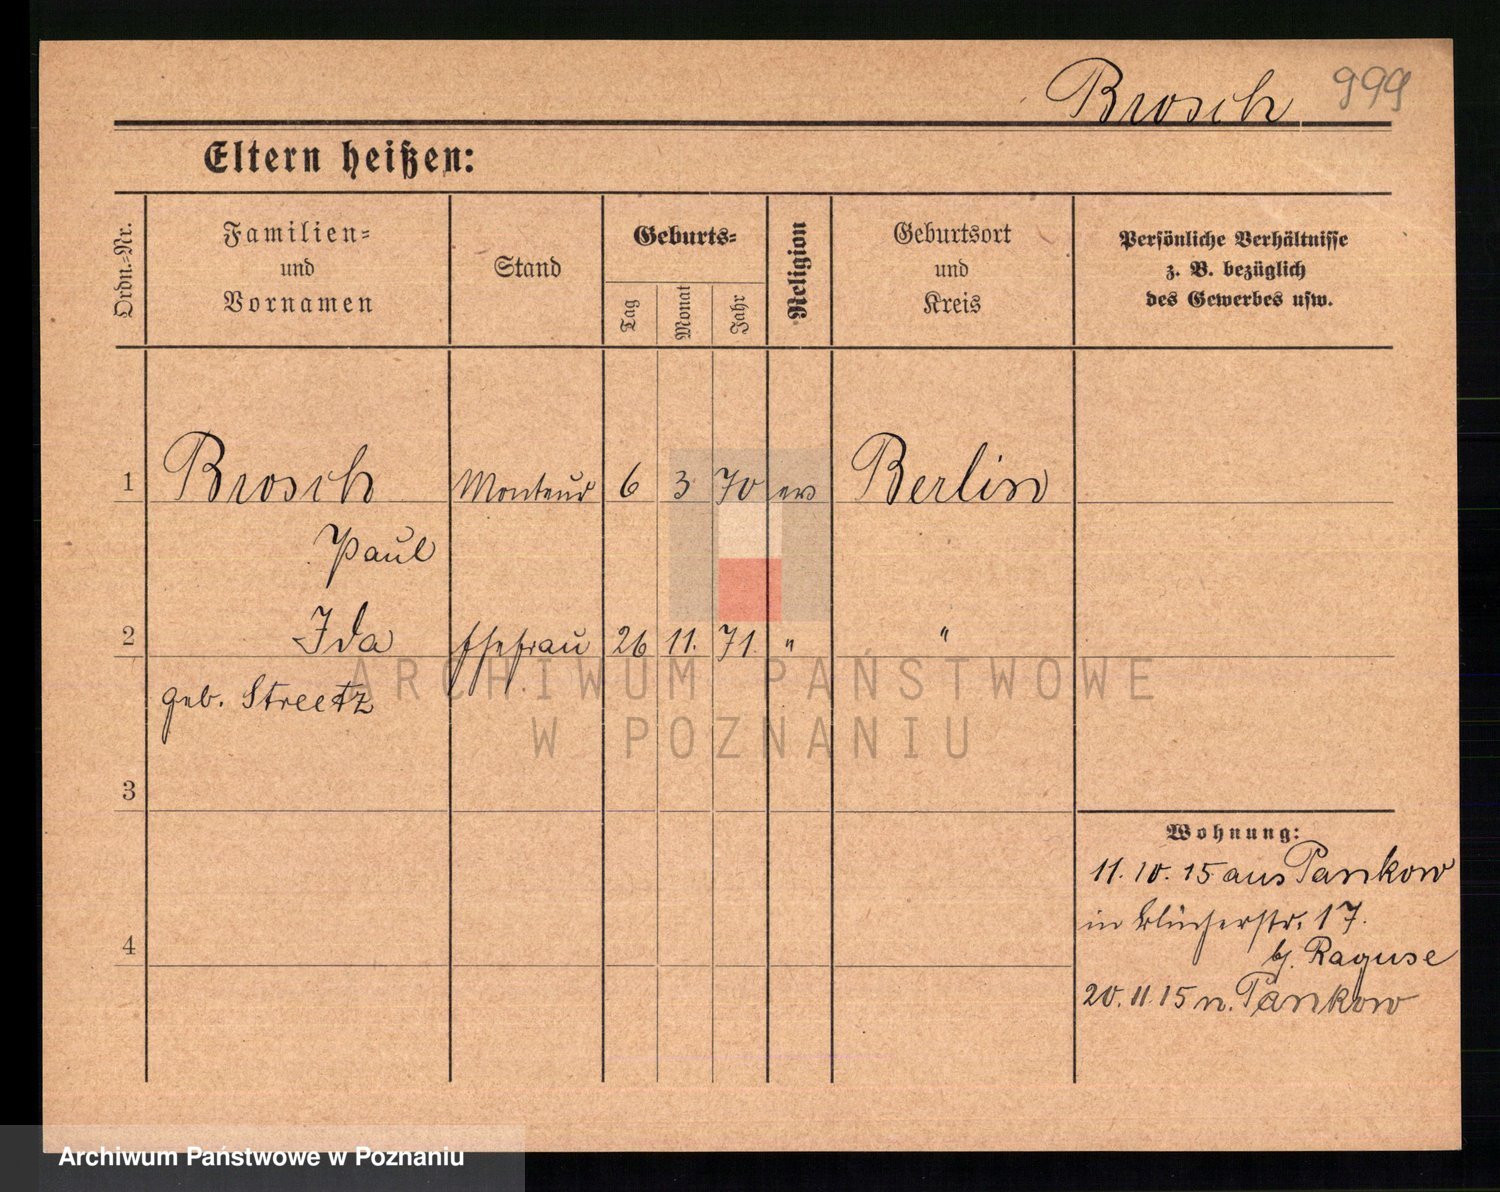 Brosch 999
Eltern heißen:
Ordn.-Nr.
Familien-
und
Vornamen
Stand
Geburts-
Tag
Monat
Jahr
Religion
Geburtsort
und
Kreis
Persönliche Verhältnisse
z. B. bezüglich
des Gewerbes usw.
1 Brosch Monteur 6 3 70 ev Berlin
Paul
2 Ida Ehefrau 26 11. 71 " "
geb. Streetz
3
4
Wohnung:
11. 10. 15 aus Pankow
in Blücherstr. 17.
b. Raguse
20. 11. 15 n. Pankow
ARCHIWUM PAŃSTWOWE
W POZNANIU
Archiwum Państwowe w Poznaniu